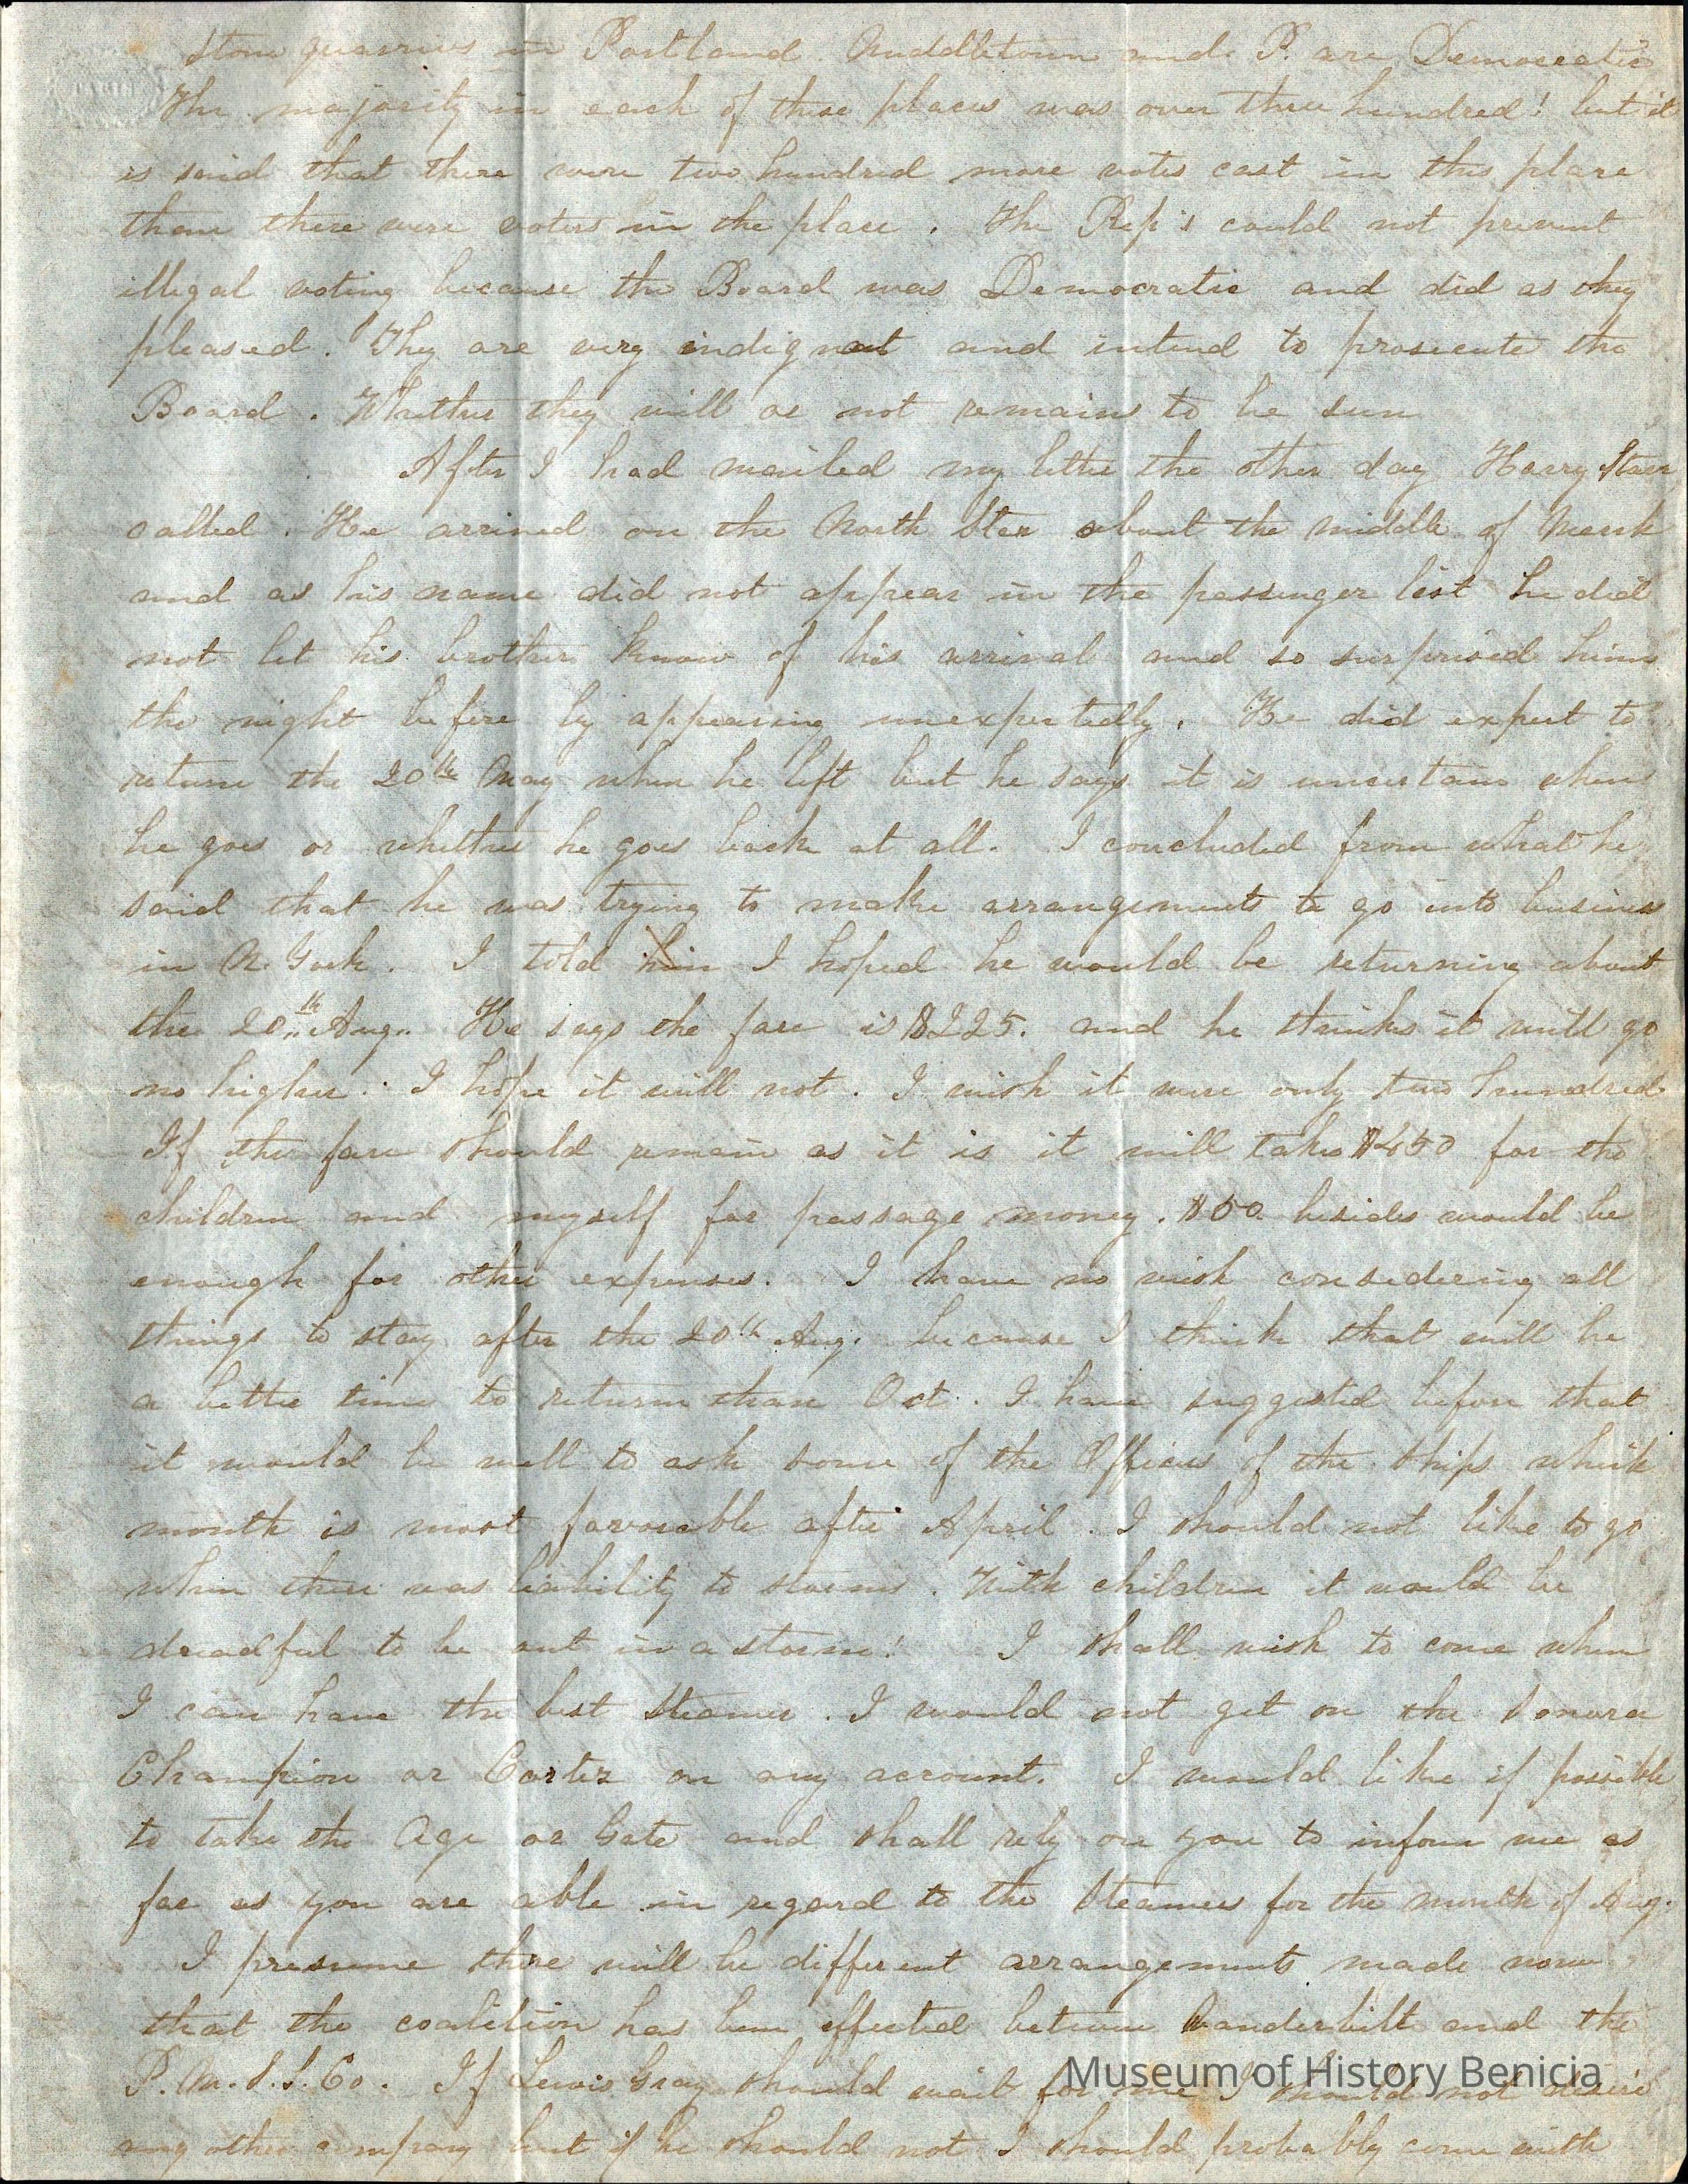 Stone quarries in Portland. Middletown and P. are Democratic
The majority in each of these places was over three hundred! but it
is said that there were two hundred more votes cast in this place
than there were voters in the place. The Rep's could not prevent
illegal voting because the Board was Democratic and did as they
pleased. They are very indignant and intend to prosecute the
Board. Whether they will or not remains to be seen
After I had mailed my letter the other day Harry Starr
called. He arrived on the North Star about the middle of March
and as his name did not appear in the passenger list he did
not let his brother know of his arrival and so surprised him
the night before by appearing unexpectedly. He did expect to
return the 20th May when he left but he says it is uncertain when
he goes or whether he goes back at all. I concluded from what he
said that he was trying to make arrangements to go into business
in N. York. I told him I hoped he would be returning about
the 20th Aug. He says the fare is $225. and he thinks it will go
no higher. I hope it will not. I wish it were only two hundred
If the fare should remain as it is it will take $450 for the
children and myself for passage money. $50 besides would be
enough for other expenses. I have no wish considering all
things to stay after the 20th Aug. because I think that will be
a better time to return than Oct. I have suggested before that
it would be well to ask some of the Officers of the Ships which
month is most favorable after April. I should not like to go
when there was liability to storms. With children it would be
dreadful to be out in a storm! I shall wish to come when
I can have the best Steamer. I would not get on the Sonora
Champion or Cortez on any account. I would like if possible
to take the Age or Gate and shall rely on you to inform me as
far as you are able in regard to the Steamers for the month of Aug.
I presume there will be different arrangements made now
that the coalition has been effected between Vanderbilt and the
P. M. S. S. Co. If Lewis Gray should wait for me I should not desire
any other company but if he should not I should probably come with
Museum of History Benicia